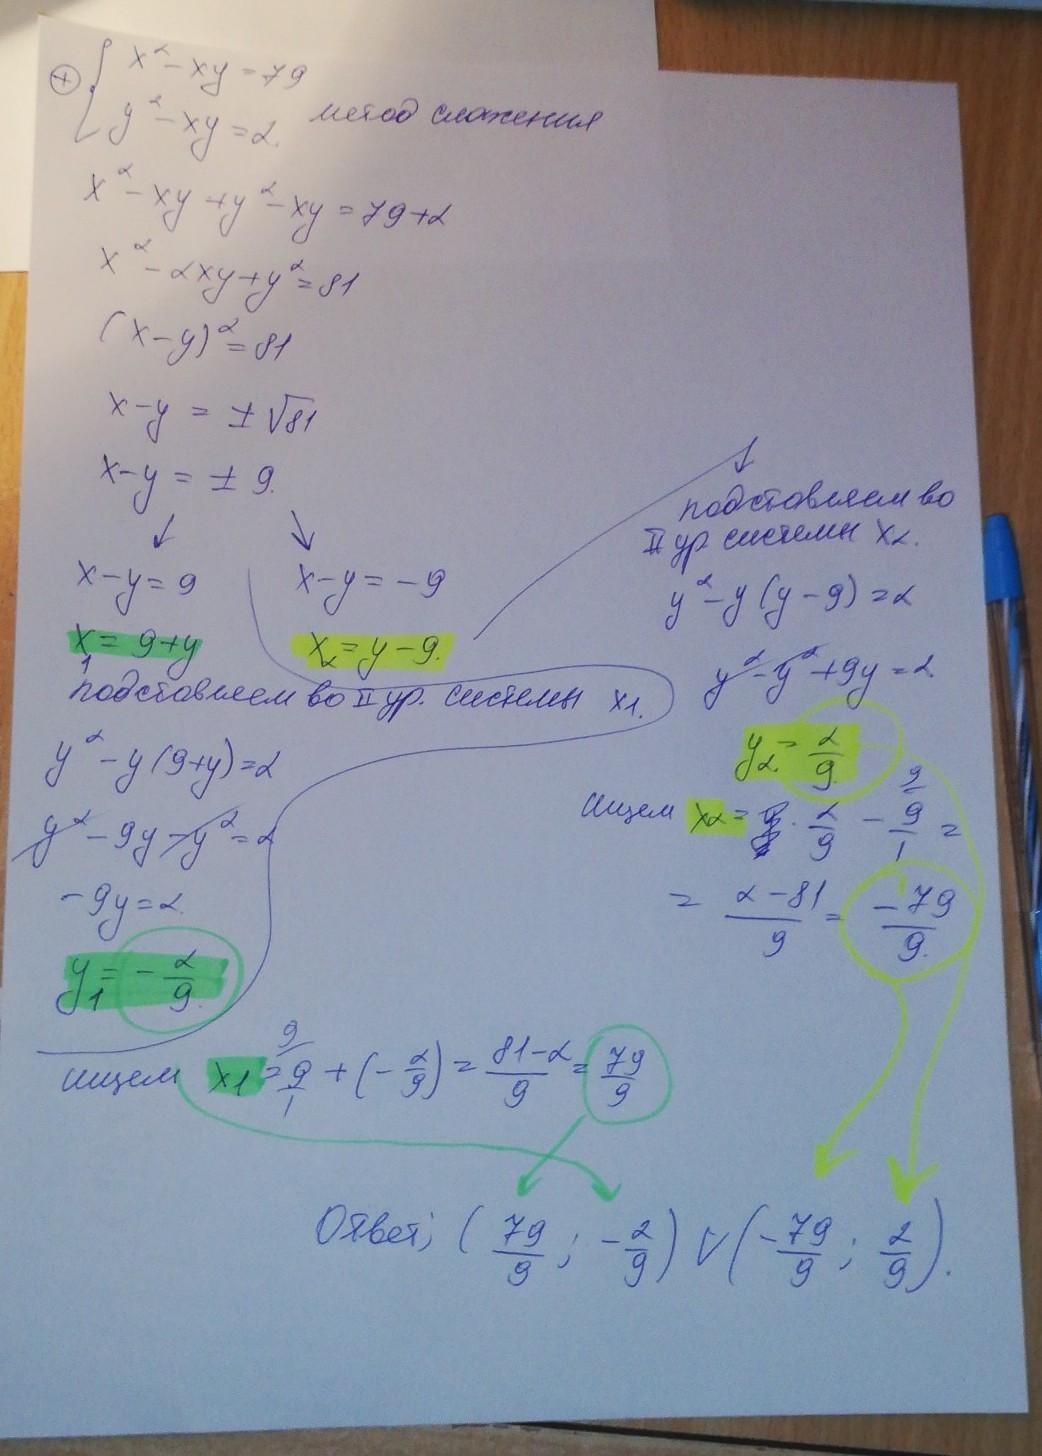 ⊕ { x² - xy = 79
y² - xy = 2. метод сложения
x² - xy + y² - xy = 79+2
x² - 2xy + y² = 81
(x-y)² = 81
x-y = ± √81
x-y = ± 9.
x-y = 9
x₁ = 9+y
подставляем во II ур. системы x1.
y² - y(9+y) = 2
y² - 9y - y² = 2
-9y = 2.
y₁ = - 2/9.
ищем x1 = 9/1 + (- 2/9) = 81-2/9 = 79/9
x-y = -9
x₂ = y-9.
подставляем во
II ур. системы x₂.
y² - y(y-9) = 2
y² - y² + 9y = 2.
y₂ = 2/9.
ищем x₂ = 2/9 - 9/1 =
= 2-81/9 = -79/9.
Ответ: (79/9 ; -2/9) ∨ (-79/9 ; 2/9).